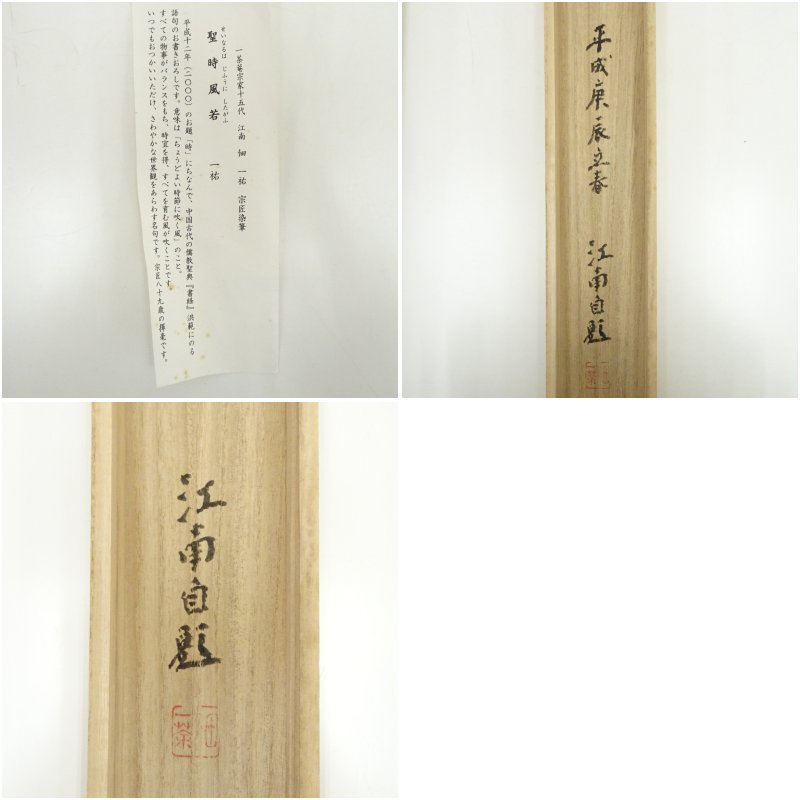 一茶菴宗家十五代　江南　佃　一祐　宗匠染筆
せいなるは　じふうに　したがふ
聖　時　風　若　　一祐
平成十二年（二〇〇〇）のお題「時」にちなんで、中国古代の儒教聖典『書経』洪範にのる
語句のお書きおろしです。意味は「ちょうどよい時節に吹く風」のこと。
すべての物事がバランスをもち、時宜を得、すべてを育む風が吹くことです。
いつでもおつかいいただけ、さわやかな世界観をあらわす名句です。宗匠八十九歳の揮毫です。
平成庚辰立春　江南自題
江南自題